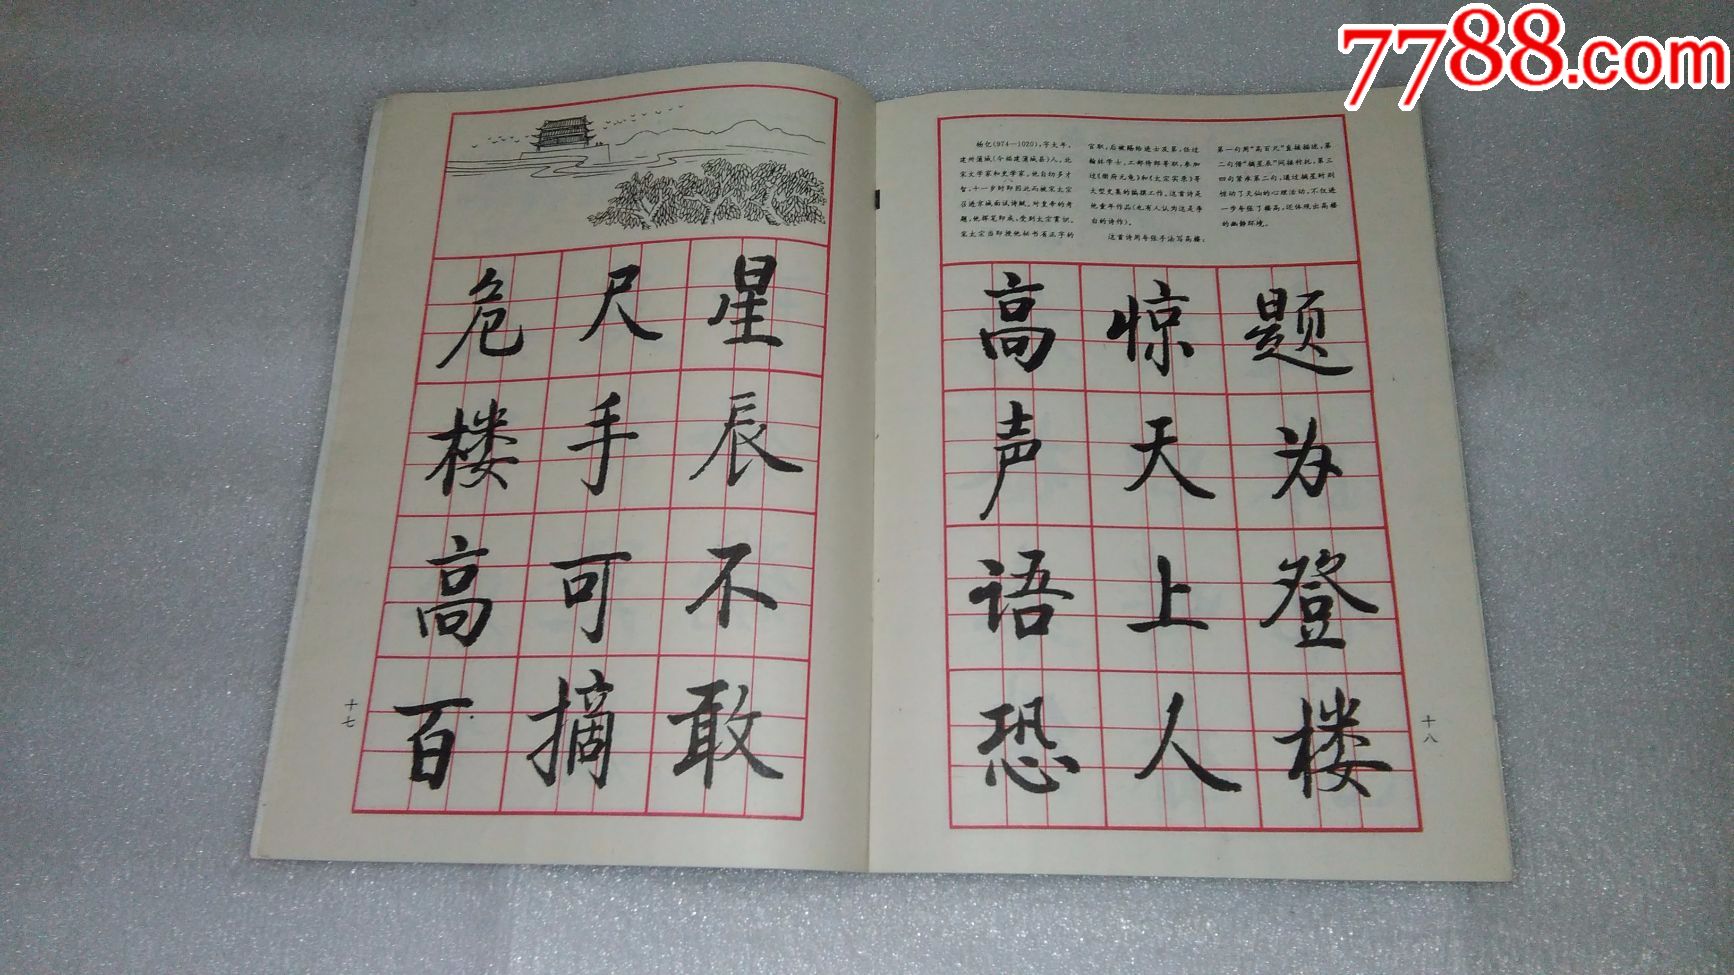 7788.com
危楼高百
尺手可摘
星辰不敢
十七
杨亿(974—1020),字大年,
建州蒲城(今福建蒲城县)人。北
宋文学家和史学家。他自幼多才
智,十一岁时即因此而被宋太宗
召进京城面试诗赋。对皇帝的考
题,他挥笔即成,受到太宗赏识。
宋太宗当即授他秘书省正字的
官职,后被赐给进士及第,任过
翰林学士、工部侍郎等职,参加
过《册府元龟》和《太宗实录》等
大型史集的编撰工作。这首诗是
他童年作品(也有人认为这是李
白的诗作)。
这首诗用夸张手法写高楼:
第一句用“高百尺”直接描述,第
二句借“摘星辰”间接衬托,第三
四句紧承第二句,通过摘星时则
惊动了天仙的心理活动,不仅进
一步夸张了楼高,还体现出高楼
的幽静环境。
高声语恐
惊天上人
题为登楼
十八